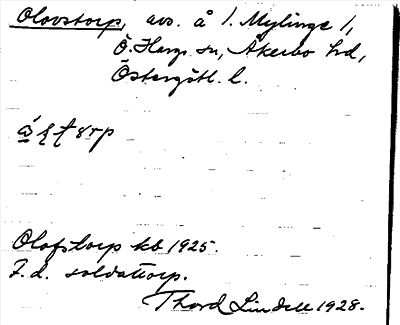 Olovstorp, avs. å 1. Mylinge 1,
Ö. Hargs sn, Åkerbo hd,
Östergötl. l.
Olofstorp kb 1925.
F. d. soldattorp.
Thord Lindell 1928.